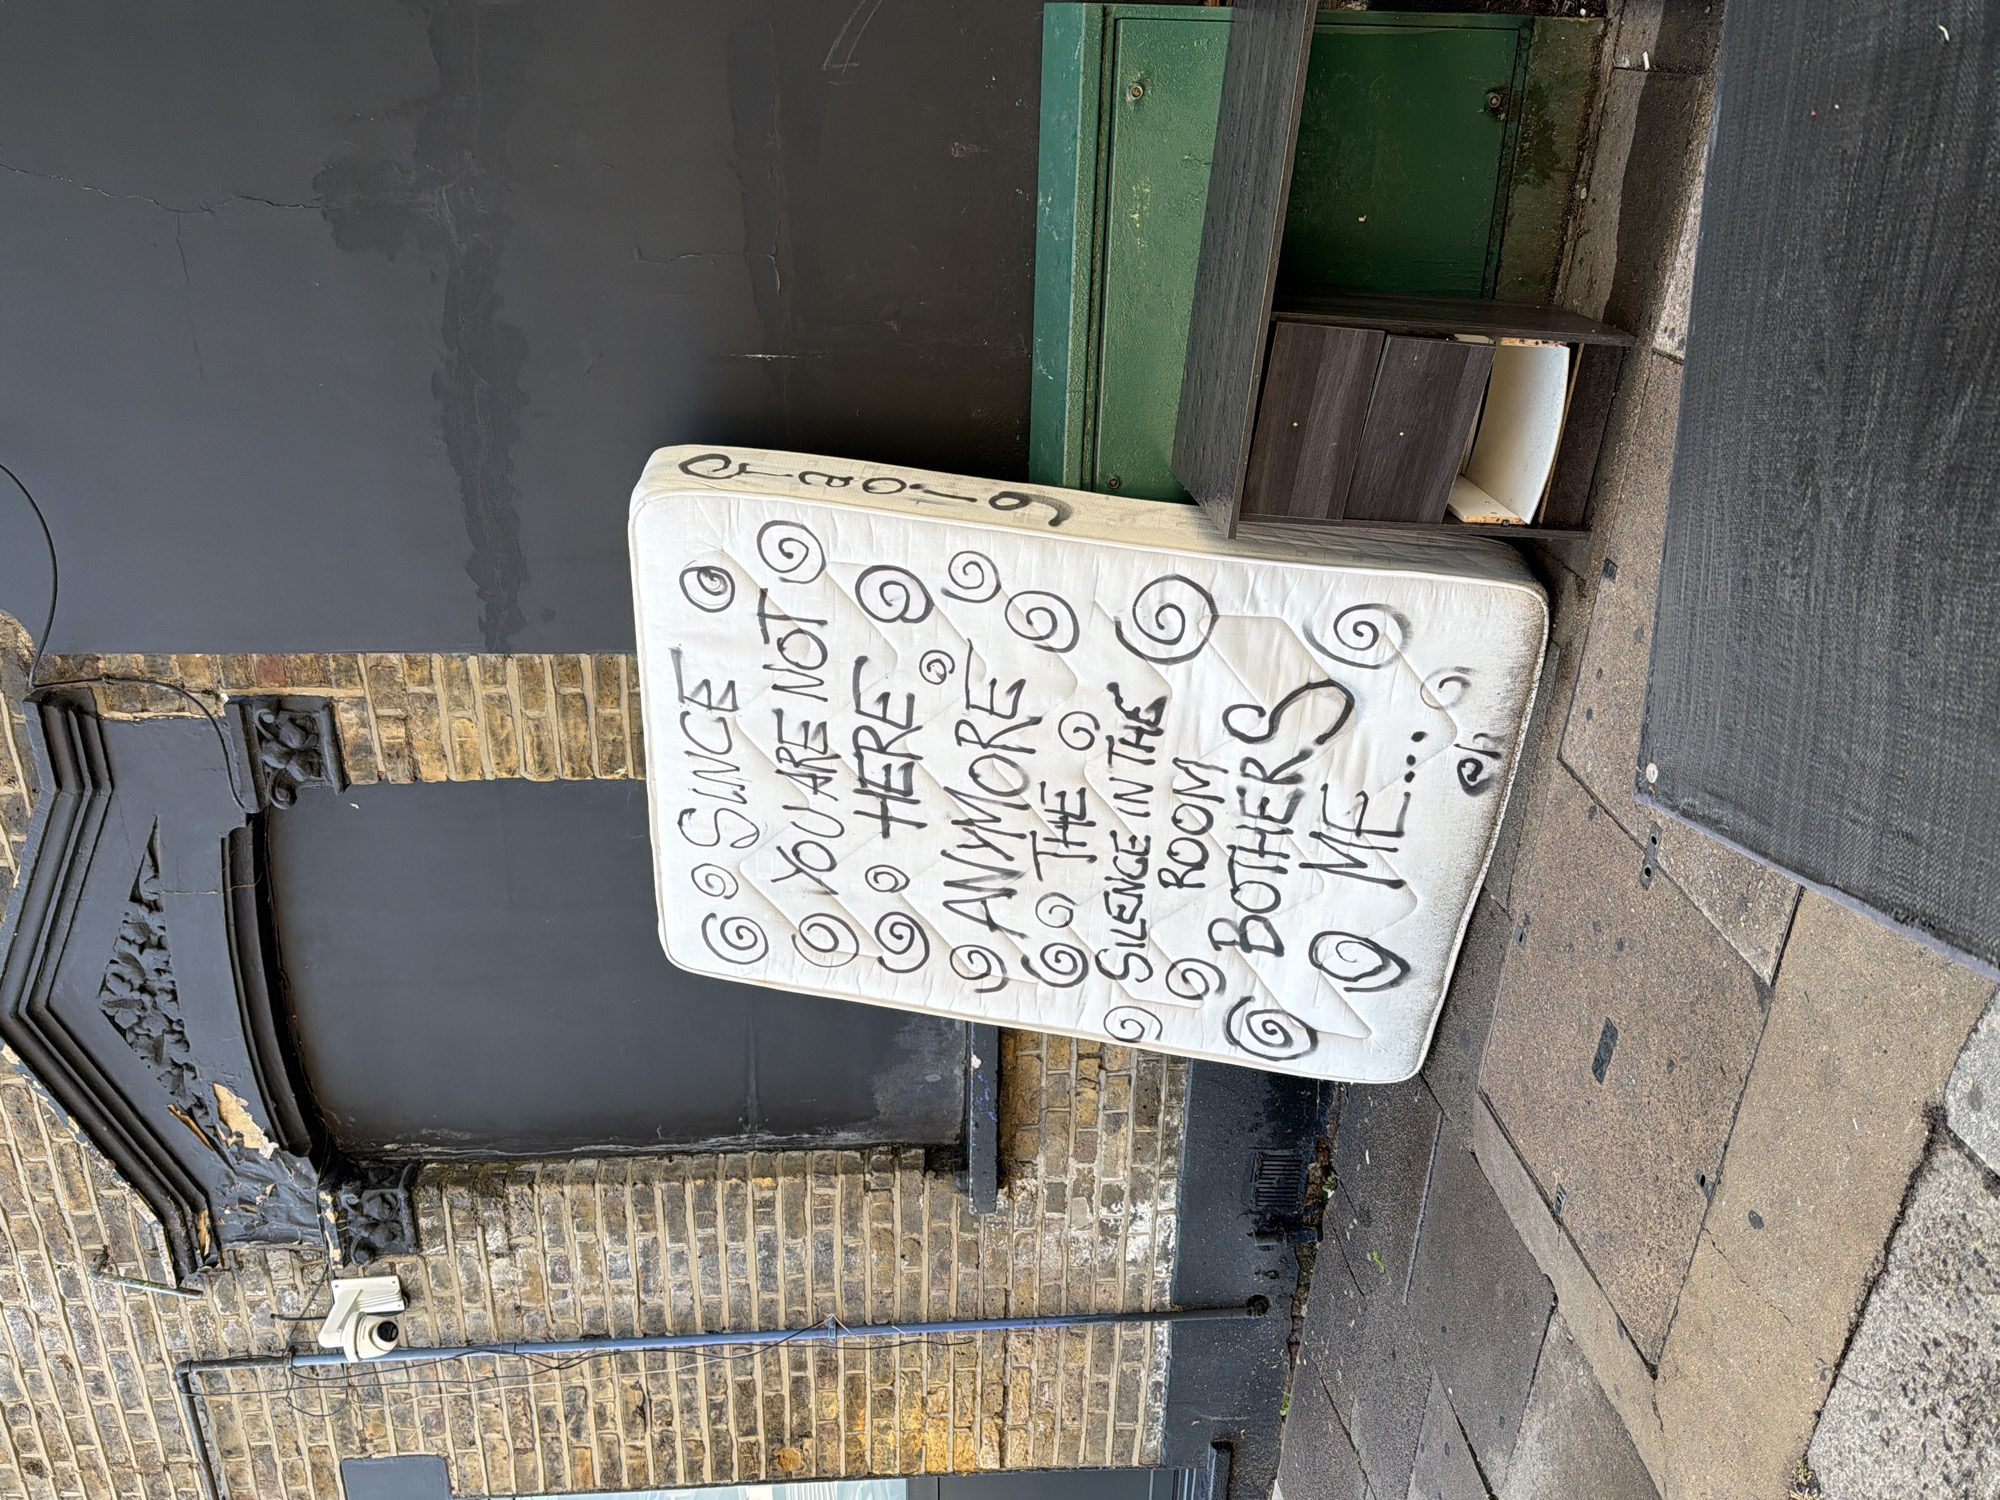 SINCE
YOU ARE NOT
HERE
ANYMORE
THE
SILENCE IN THE
ROOM
BOTHERS
ME...